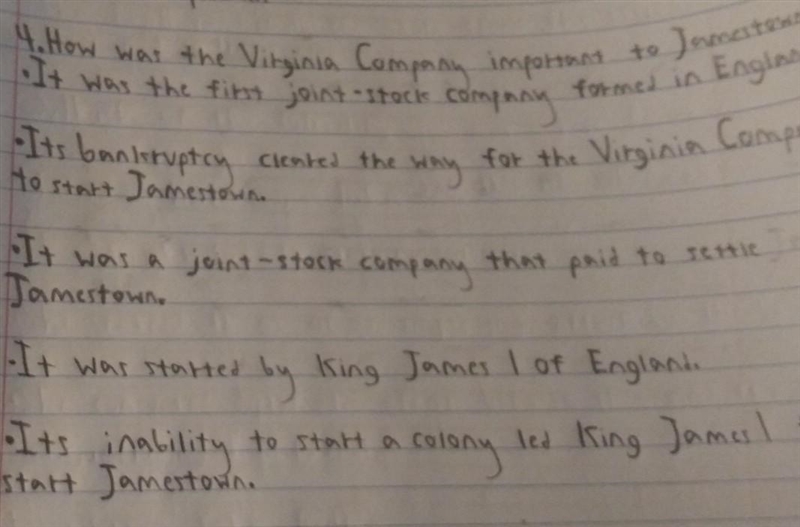 4. How was the Virginia Company important to Jamestown
• It was the first joint-stock company formed in Englan
• Its bankruptcy cleared the way for the Virginia Comp
to start Jamestown.
• It was a joint-stock company that paid to settle
Jamestown.
• It was started by King James I of England.
• Its inability to start a colony led King James I
start Jamestown.